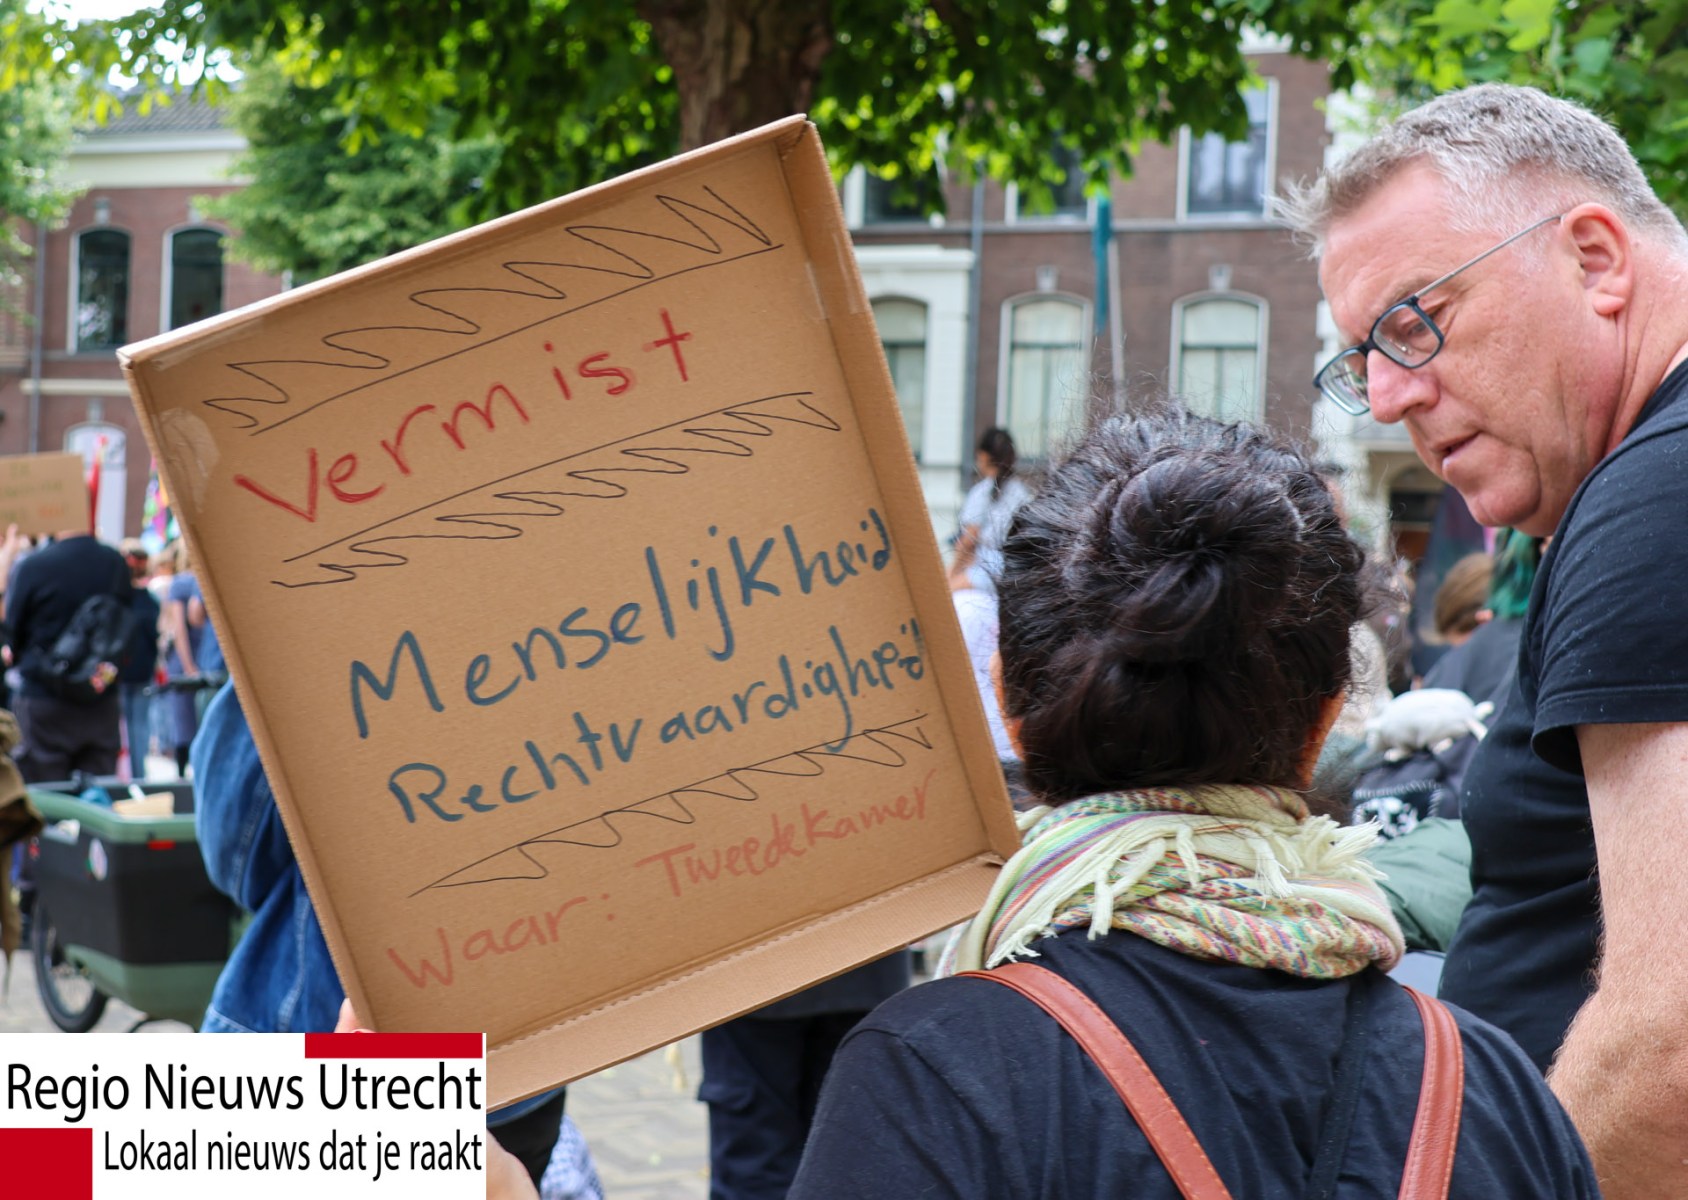 Vermist
Menselijkheid
Rechtvaardigheid
Waar: Tweedekamer
Regio Nieuws Utrecht
Lokaal nieuws dat je raakt